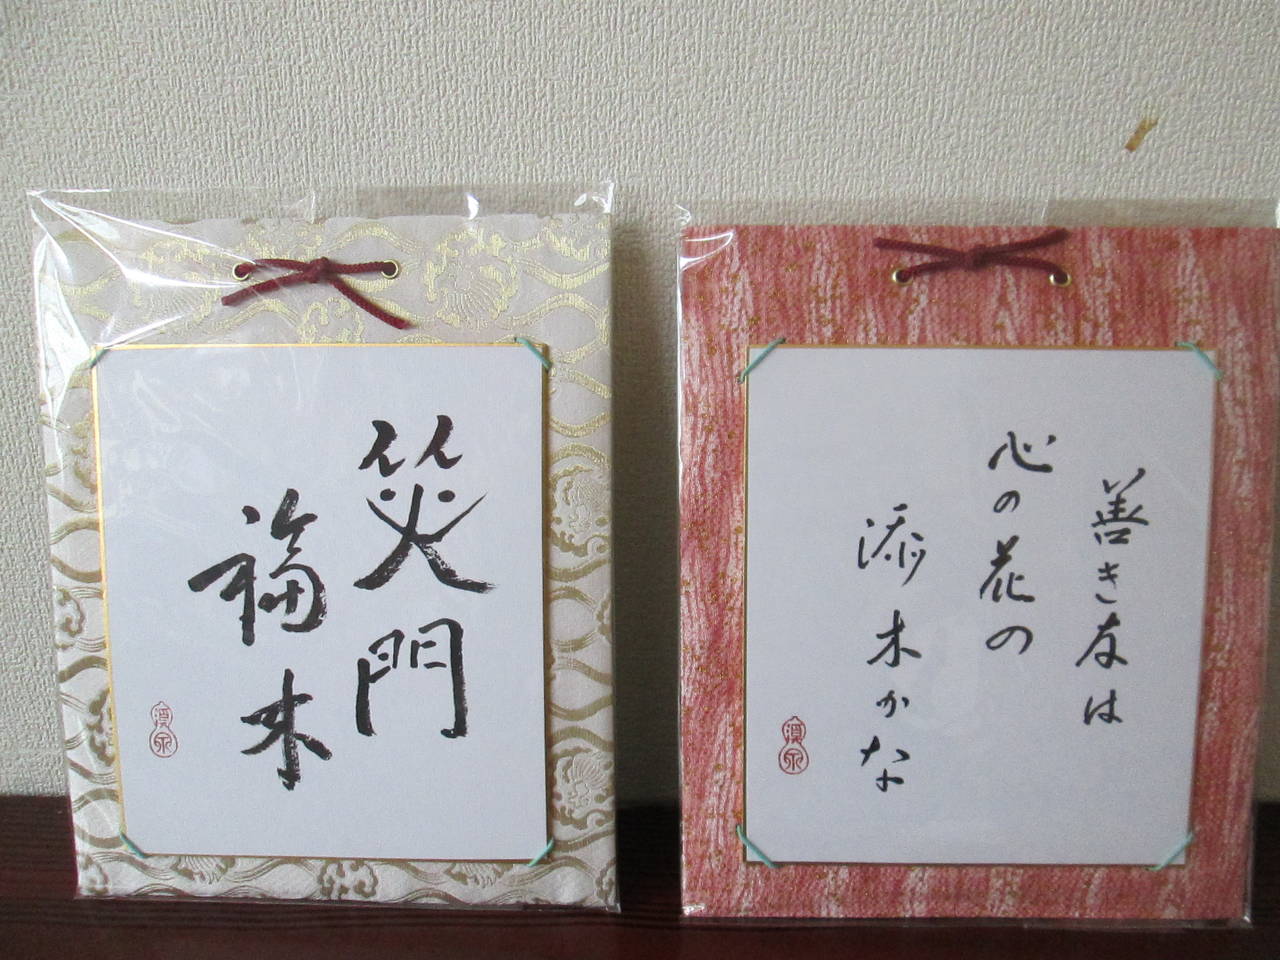 笑門
福来
善き友は
心の花の
添木かな